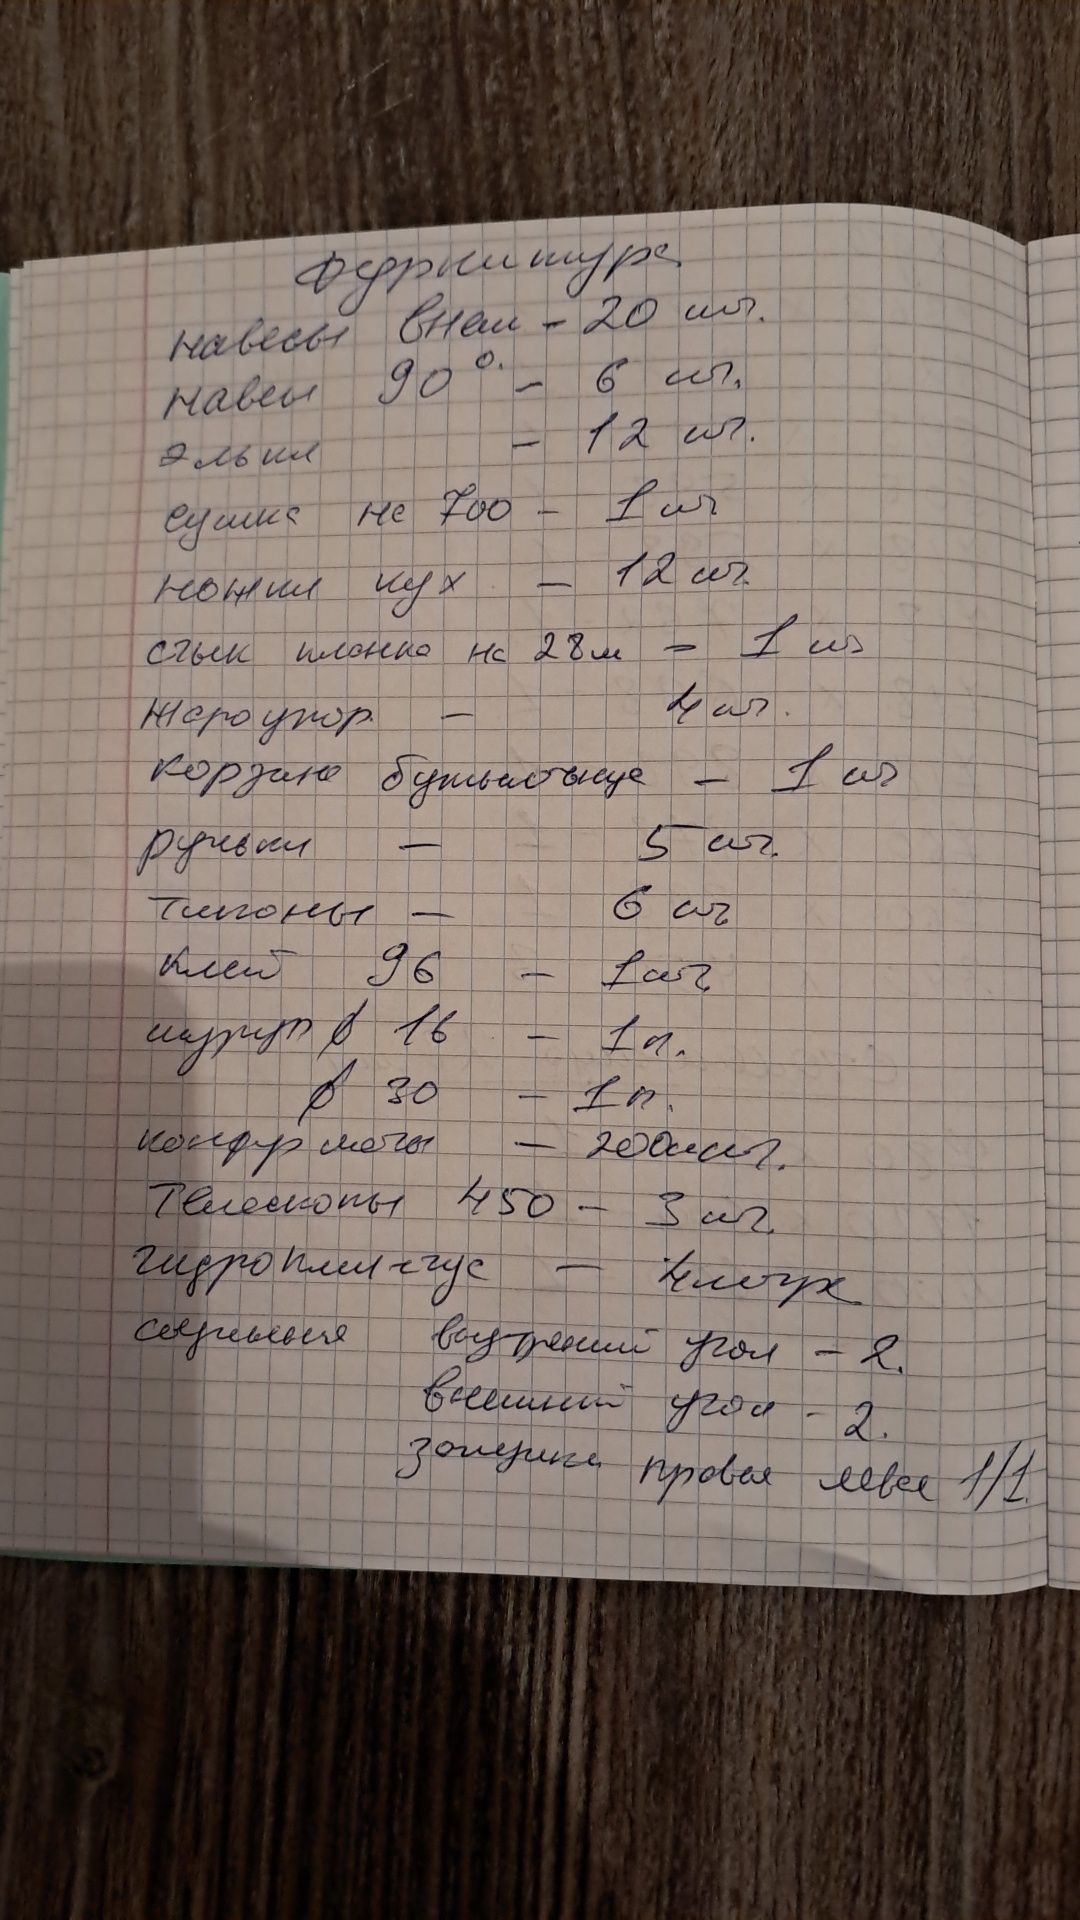 Фурнитура
навесы внаи - 20 шт.
навесы 90°. - 6 шт.
эльки - 12 шт.
сушка на 700 - 1 шт
ножки кух - 12 шт.
стык планка на 28м - 1 шт
жароупор - 4 шт.
корзина бутылочница - 1 шт
ручьки - 5 шт.
типоны - 6 шт
клей 96 - 1 шт.
шуруп ∅ 16 - 1 п.
∅ 30 - 1 п.
конфирматы - 200 шт.
Телескопы 450 - 3 шт.
гидроплинтус - 4 метра
внутрений угол - 2.
внешний угол - 2.
правая левая 1/1